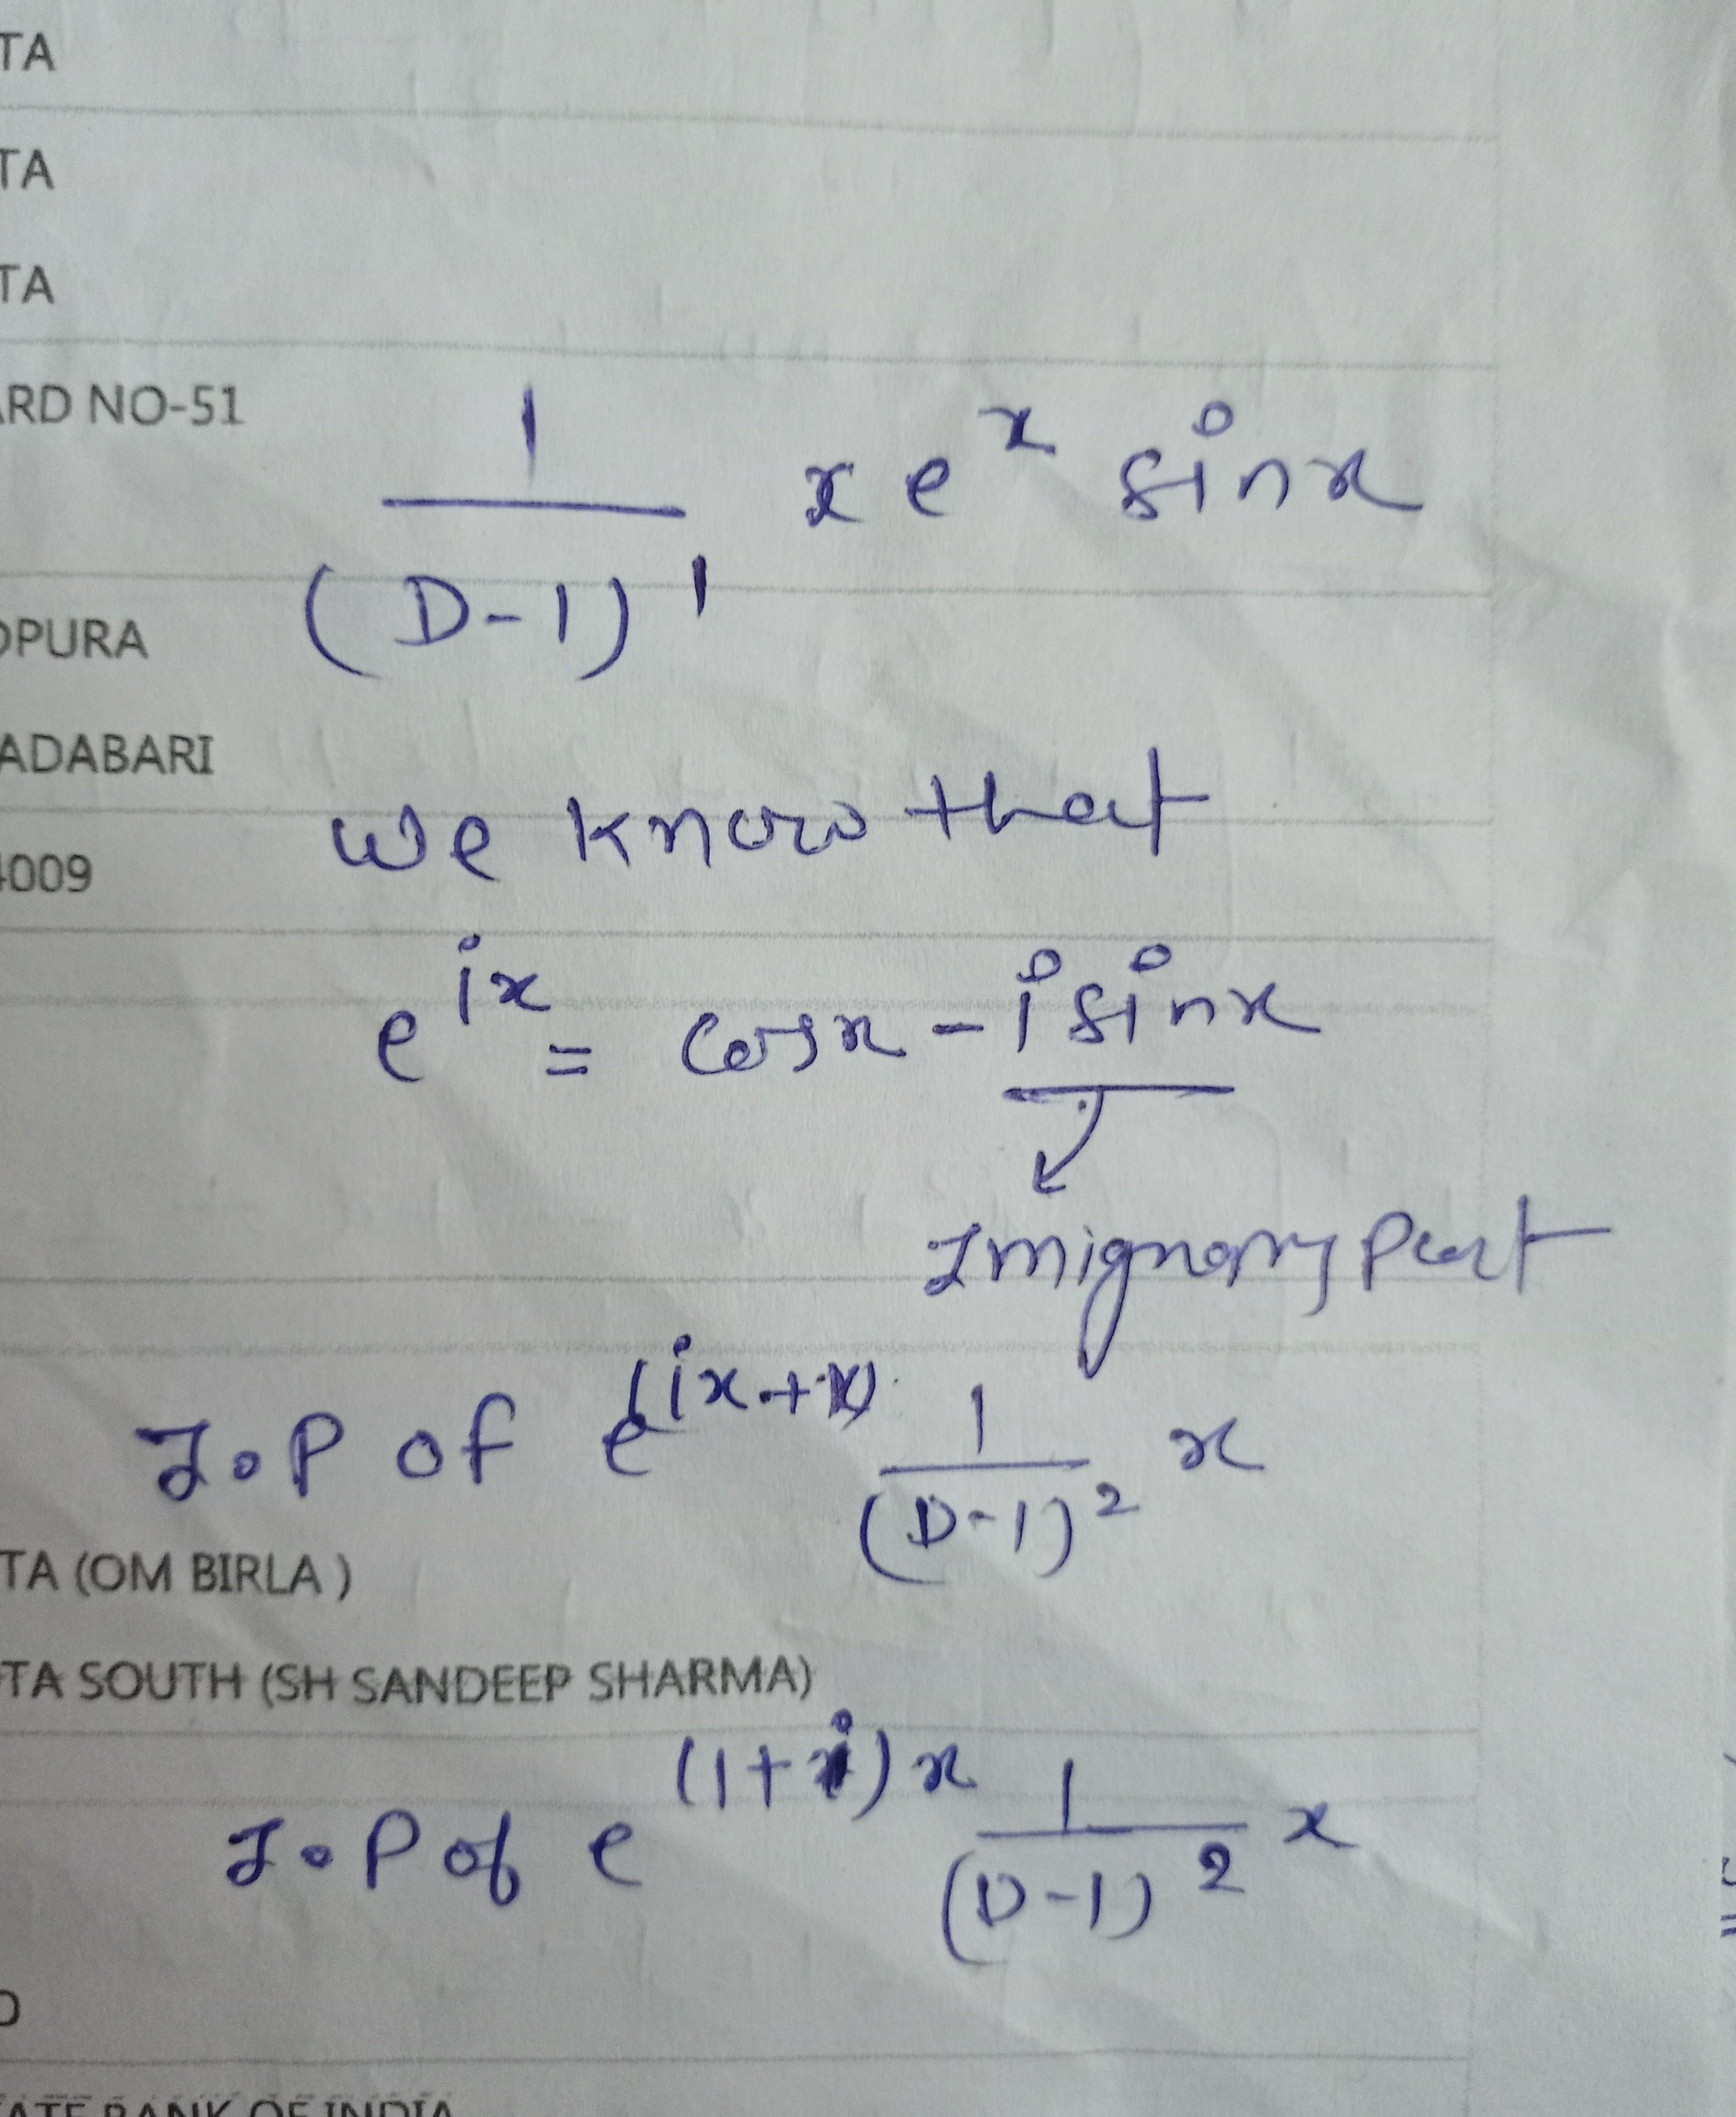 TA
TA
TA
ARD NO-51
1/(D-1)¹ x e^x sinx
OPURA
ADABARI
we know that
4009
e^ix = cosx - i sinx
Imignary Part
I.P of e^(ix+x) 1/(D-1)² x
TA (OM BIRLA )
OTA SOUTH (SH SANDEEP SHARMA)
I.P of e^(1+i)x 1/(D-1)² x
TATE BANK OF INDIA